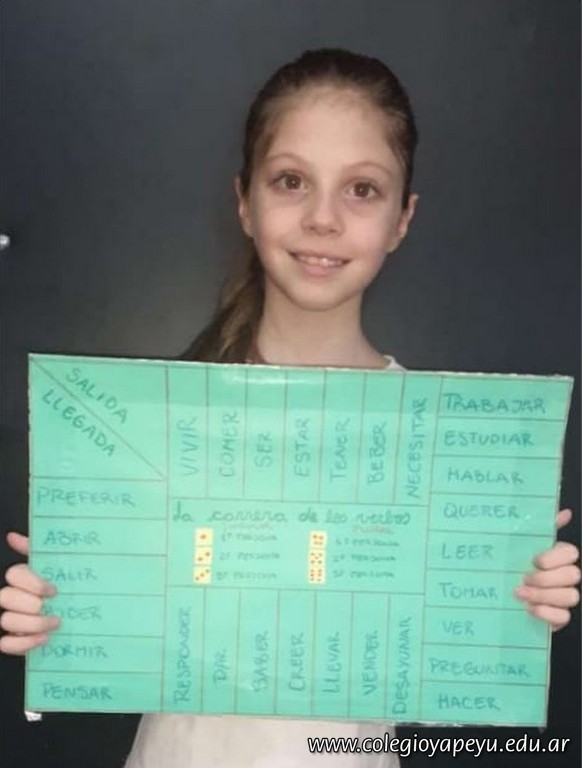 SALIDA
LLEGADA
VIVIR
COMER
SER
ESTAR
TENER
BEBER
NECESITAR
TRABAJAR
ESTUDIAR
HABLAR
QUERER
LEER
TOMAR
VER
PREGUNTAR
HACER
La carrera de los verbos
1º PERSONA
2º PERSONA
3º PERSONA
1º PERSONA
2º PERSONA
3º PERSONA
PREFERIR
ABRIR
SALIR
DORMIR
PENSAR
RESPONDER
SABER
CREER
LLEVAR
VENDER
DESAYUNAR
www.colegioyapeyu.edu.ar